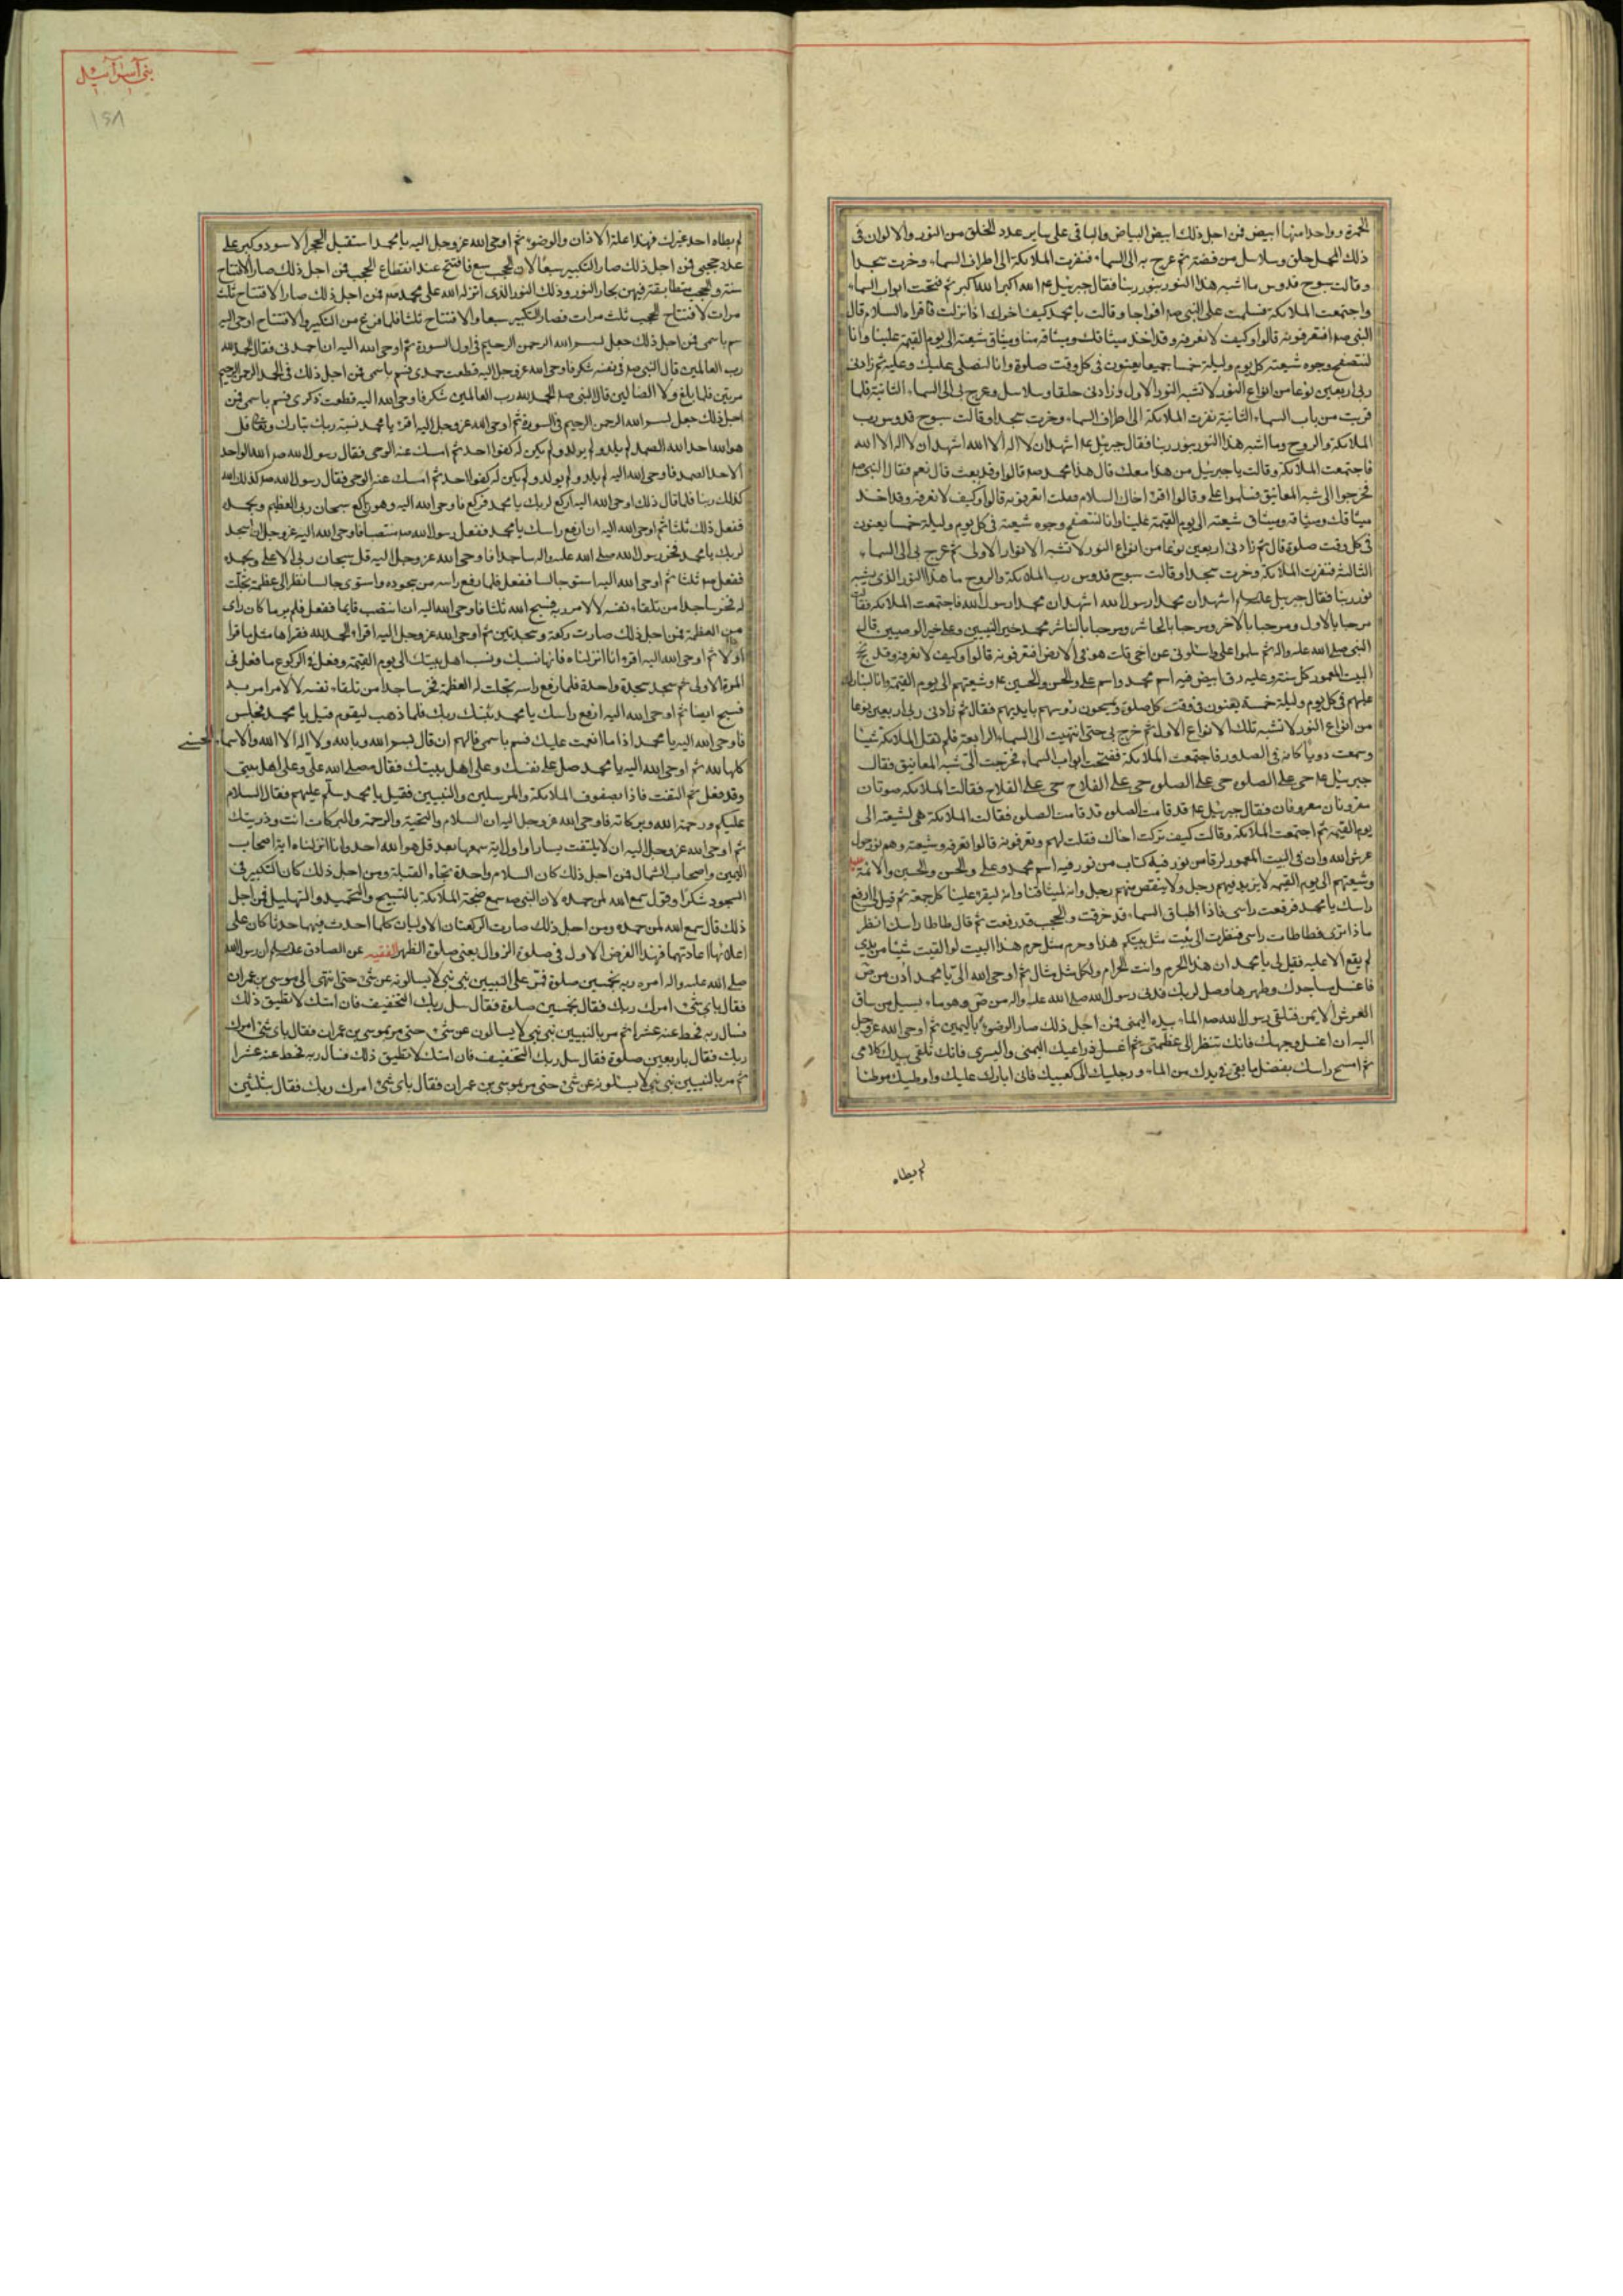 الحمرة وواحدا منها ابيض فمن اجل ذلك ابيض البياض والباقى على ساير عدد الخلق من النور والالوان فى
ذلك المحمل حلق وسلاسل من فضة ثم عرج به الى السماء فنفرت الملائكة الى اطراف السماء وخرت سجدا
وقالت سبوح قدوس ما اشبه هذا النور بنور ربنا فقال جبرئيل ع الله اكبر الله اكبر ثم فتحت ابواب السماء
واجتمعت الملائكة فسلمت على النبى ص افواجا وقالت يا محمد كيف اخوك اذا نزلت فاقراه السلام قال
النبى ص افتعرفونه قالوا وكيف لا نعرفه وقد اخذ ميثاقك وميثاقه منا وميثاق شيعته الى يوم القيمة علينا وانا
لنتصفح وجوه شيعته كل يوم وليلة خمسا جميعا يعنون فى كل وقت صلوة وانا لنصلى عليك وعليه ثم زادنى
ربى اربعين نوعا من انواع النور لا تشبه النور الاول وزادنى حلقا وسلاسل وعرج بى الى السماء الثانية فلما
قربت من باب السماء الثانية نفرت الملائكة الى اطراف السماء وخرت سجدا وقالت سبوح قدوس رب
الملائكة والروح وما اشبه هذا النور بنور ربنا فقال جبرئيل ع اشهد ان لا اله الا الله اشهد ان لا اله الا الله
فاجتمعت الملائكة وقالت يا جبرئيل من هذا معك قال هذا محمد ص قالوا وقد بعث قال نعم فقال النبى ص
فخرجوا الى شبه المعانيق فسلموا على وقالوا اقرء اخاك السلام فقلت اتعرفونه قالوا وكيف لا نعرفه وقد اخذ
ميثاقك وميثاقه وميثاق شيعته الى يوم القيمة علينا وانا لنتصفح وجوه شيعته فى كل يوم وليلة خمسا يعنون
فى كل وقت صلوة قال ثم زادنى اربعين نوعا من انواع النور لا تشبه الانوار الاولى ثم عرج بى الى السماء
الثالثة فنفرت الملائكة وخرت سجدا وقالت سبوح قدوس رب الملائكة والروح ما هذا النور الذى يشبه
نور ربنا فقال جبرئيل عليه السلم اشهد ان محمدا رسول الله اشهد ان محمدا رسول الله فاجتمعت الملائكة فقالت
مرحبا بالاول ومرحبا بالاخر ومرحبا بالحاشر ومرحبا بالناشر محمد خير النبيين وعلى خير الوصيين قال
النبى صلى الله عليه واله ثم سلموا على وسالونى عن اخى قلت هو فى الارض افتعرفونه قالوا وكيف لا نعرفه وقد نحج
البيت المعمور كل سنة وعليه رق ابيض فيه اسم محمد واسم على والحسن والحسين ع وشيعتهم الى يوم القيمة وانا لنبارك
عليهم فى كل يوم وليلة خمسة يعنون فى وقت كل صلوة ويمسحون رؤسهم بايديهم فقال ثم زادنى ربى اربعين نوعا
من انواع النور لا تشبه تلك الانواع الاولة ثم عرج بى حتى انتهيت الى السماء الرابعة فلم تقل الملائكة شيئا
وسمعت دويا كانه فى الصدور فاجتمعت الملائكة ففتحت ابواب السماء فخرجت الى شبه المعانيق فقال
جبرئيل ع حى على الصلوة حى على الصلوة حى على الفلاح حى على الفلاح فقالت الملائكة صوتان
مقرونان معروفان فقال جبرئيل ع قد قامت الصلوة قد قامت الصلوة فقالت الملائكة هى لشيعته الى
يوم القيمة ثم اجتمعت الملائكة وقالت كيف تركت اخاك فقلت لهم وتعرفونه قالوا نعرفه وشيعته وهم نور حول
عرش الله وان فى البيت المعمور لرقا من نور فيه كتاب من نور فيه اسم محمد وعلى والحسن والحسين والائمة
وشيعتهم الى يوم القيمة لا يزيد فيهم رجل ولا ينقص منهم رجل وانه لميثاقنا وانه ليقرء علينا كل جمعة ثم قيل لى ارفع
راسك يا محمد فرفعت راسى فاذا اطباق السماء قد خرقت والحجب قد رفعت ثم قال طاطا راسك انظر
ماذا ترى فطاطات راسى فنظرت الى بيت مثل بيتكم هذا وحرم مثل حرم هذا البيت لو القيت شيئا من يدى
لم يقع الا عليه فقيل لى يا محمد ان هذا الحرم وانت الحرام ولكل مثل مثال ثم اوحى الله الى يا محمد ادن من ص
فاغسل مساجدك وطهرها وصل لربك فدنى رسول الله صلى الله عليه واله من ص وهو ماء يسيل من ساق
العرش الايمن فتلقى رسول الله ص الماء بيده اليمنى فمن اجل ذلك صار الوضوء باليمين ثم اوحى الله عز وجل
اليه ان اغسل وجهك فانك تنظر الى عظمتى ثم اغسل ذراعيك اليمنى واليسرى فانك تلقى بيدك كلامى
ثم امسح راسك بفضل ما بقى فى يدك من الماء ورجليك الى كعبيك فانى ابارك عليك واوطيك موطئا
لم يطاه
بنى آسرآئيل
۱۵۸
لم يطاه احد غيرك فهذا علة الاذان والوضوء ثم اوحى الله عز وجل اليه يا محمد استقبل الحجر الاسود وكبر على
عدد حجبى فمن اجل ذلك صار التكبير سبعا لان الحجب سبع فافتتح عند انقطاع الحجب فمن اجل ذلك صار الافتتاح
سنة والحجب متطابقة فيهن بحار النور وذلك النور الذى انزله الله على محمد ص فمن اجل ذلك صار الافتتاح ثلث
مرات لافتتاح الحجب ثلث مرات فصار التكبير سبعا والافتتاح ثلثا فلما فرغ من التكبير والافتتاح اوحى اليه
سم باسمى فمن اجل ذلك جعل بسم الله الرحمن الرحيم فى اول السورة ثم اوحى الله اليه ان احمدنى فقال الحمد لله
رب العالمين قال النبى ص فى نفسه شكرا فاوحى الله عز وجل اليه قطعت حمدى فسم باسمى فمن اجل ذلك فى الحمد الرحمن الرحيم
مرتين فلما بلغ ولا الضالين قال النبى ص الحمد لله رب العالمين شكرا فاوحى الله اليه قطعت ذكرى فسم باسمى فمن
اجل ذلك جعل بسم الله الرحمن الرحيم فى السورة ثم اوحى الله عز وجل اليه اقرء يا محمد نسبة ربك تبارك وتعالى قل
هو الله احد الله الصمد لم يلد ولم يولد ولم يكن له كفوا احد ثم امسك عنه الوحى فقال رسول الله ص الله الواحد
الاحد الصمد فاوحى الله اليه لم يلد ولم يولد ولم يكن له كفوا احد ثم امسك عنه الوحى فقال رسول الله ص كذلك الله
كذلك ربنا فلما قال ذلك اوحى الله اليه اركع لربك يا محمد فركع فاوحى الله اليه وهو راكع سبحان ربى العظيم وبحمده
ففعل ذلك ثلثا ثم اوحى الله اليه ان ارفع راسك يا محمد ففعل رسول الله ص منتصبا فاوحى الله اليه عز وجل ان اسجد
لربك يا محمد فخر رسول الله صلى الله عليه واله ساجدا فاوحى الله عز وجل اليه قل سبحان ربى الاعلى وبحمده
ففعل ص ثلثا ثم اوحى الله اليه استو جالسا ففعل فلما رفع راسه من سجوده واستوى جالسا نظر الى عظمة تجلت
له فخر ساجدا من تلقاء نفسه لا لامر ربه فسبح الله ثلثا فاوحى الله اليه ان انتصب قائما ففعل فلم ير ما كان راى
من العظمة فمن اجل ذلك صارت ركعة وسجدتين ثم اوحى الله عز وجل اليه اقراء الحمد لله فقراها مثل ما قرا
اولا ثم اوحى الله اليه اقرء انا انزلناه فانها نسبك ونسب اهل بيتك الى يوم القيمة وفعل فى الركوع ما فعل فى
المرة الاولى ثم سجد سجدة واحدة فلما رفع راسه تجلت له العظمة فخر ساجدا من تلقاء نفسه لا لامر امر به
فسبح ايضا ثم اوحى الله اليه ارفع راسك يا محمد ثبتك ربك فلما ذهب ليقوم قيل يا محمد فجلس
فاوحى الله اليه يا محمد اذا ما انعمت عليك فسم باسمى فالهم ان قال بسم الله وبالله ولا اله الا الله والاسماء الحسنى
كلها لله ثم اوحى الله اليه يا محمد صل على نفسك وعلى اهل بيتك فقال صلى الله على وعلى اهل بيتى
وقد فعل ثم التفت فاذا بصفوف الملائكة والمرسلين والنبيين فقيل يا محمد سلم عليهم فقال السلام
عليكم ورحمة الله وبركاته فاوحى الله عز وجل اليه ان السلام والتحية والرحمة والبركات انت وذريتك
ثم اوحى الله عز وجل اليه ان لا يلتفت يسارا واول اية سمعها بعد قل هو الله احد وانا انزلناه اية اصحاب
اليمين واصحاب الشمال فمن اجل ذلك كان السلام واحدة تجاه القبلة ومن اجل ذلك كان التكبير فى
السجود شكرا وقوله سمع الله لمن حمده لان النبى ص سمع ضجة الملائكة بالتسبيح والتحميد والتهليل فمن اجل
ذلك قال سمع الله لمن حمده ومن اجل ذلك صارت الركعتان الاوليان كلما احدث فيهما حدثا كان على
اعادتهما فهذا الفرض الاول فى صلوة الزوال يعنى صلوة الظهر الفقيه عن الصادق عليه السلم ان رسول الله
صلى الله عليه واله امره ربه بخمسين صلوة فمر على النبيين نبى نبى لا يسالونه عن شئ حتى انتهى الى موسى بن عمران
فقال باى شئ امرك ربك فقال بخمسين صلوة فقال سل ربك التخفيف فان امتك لا تطيق ذلك
فسال ربه فحط عنه عشرا ثم مر بالنبيين نبى نبى لا يسالون عن شئ حتى مر بموسى بن عمران فقال باى شئ امرك
ربك فقال باربعين صلوة فقال سل ربك التخفيف فان امتك لا تطيق ذلك فسال ربه فحط عنه عشرا
ثم مر بالنبيين نبى نبى لا يسئلونه عن شئ حتى مر بموسى بن عمران فقال باى شئ امرك ربك فقال بثلثين